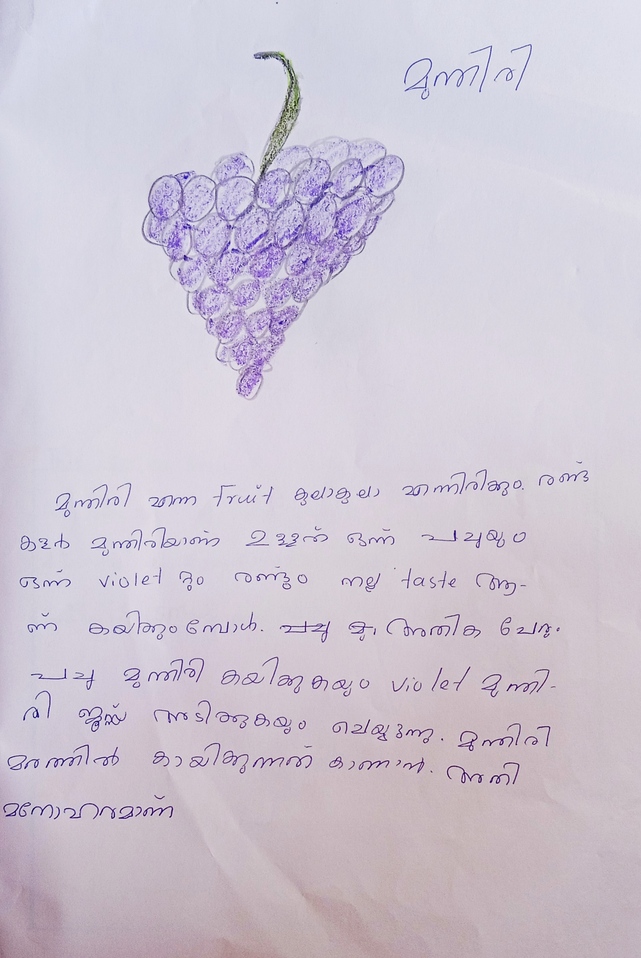 മുന്തിരി
മുന്തിരി എന്ന fruit കുലാകുലാ എന്നിരിക്കും. രണ്ട്
കളർ മുന്തിരിയാണ് ഉള്ളത് ഒന്ന് പച്ചയും
ഒന്ന് violet റ്റും രണ്ടും നല്ല taste ആ-
ണ് കയിക്കുംമ്പോൾ. പച്ച മു, അതിക പേരും.
പച്ച മുന്തിരി കയിക്കുകയും violet മുന്തി-
രി ജൂസ്സ് അടിക്കുകയും ചെയ്യുന്നു. മുന്തിരി
മരത്തിൽ കായിക്കുന്നത് കാണാൻ. അതി
മനോഹരമാണ്